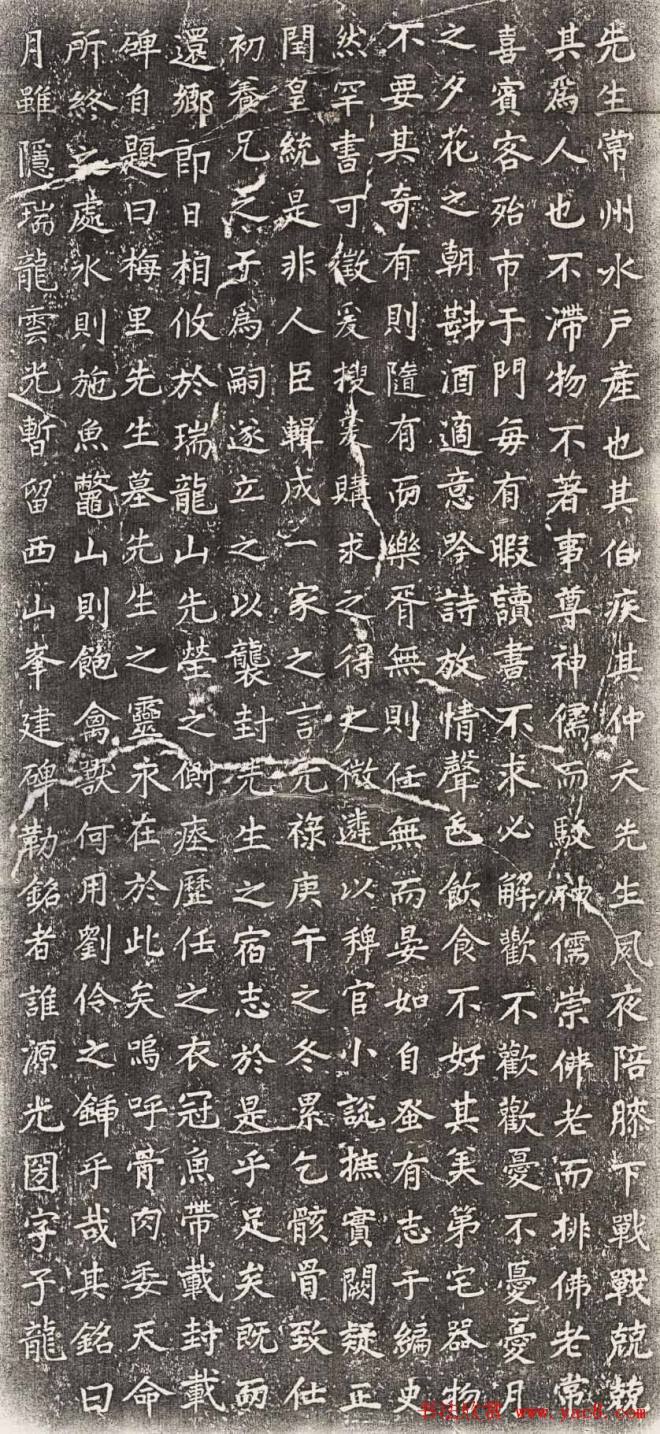 先生常州水戶產也其伯疾其仲夭先生夙夜陪膝下戰戰兢兢
其爲人也不滯物不著事尊神儒而駁神儒崇佛老而排佛老常
喜賓客殆市于門每有暇讀書不求必解歡不歡歡憂不憂憂月
之夕花之朝斟酒適意吟詩放情聲色飲食不好其美第宅器物
不要其奇有則隨有而樂胥無則任無而晏如自蚤有志于編史
然罕書可徵爰搜爰購求之得之微遴以稗官小說摭實闕疑正
閏皇統是非人臣輯成一家之言元祿庚午之冬累乞骸骨致仕
初養兄之子爲嗣遂立之以襲封先生之宿志於是乎足矣既而
還鄉即日相攸於瑞龍山先塋之側瘞歷任之衣冠魚帶載封載
碑自題曰梅里先生墓先生之靈永在於此矣嗚呼骨肉委天命
所終之處水則施魚鼈山則飽禽獸何用劉伶之鍤乎哉其銘曰
月雖隱瑞龍雲光暫留西山峯建碑勒銘者誰源光圀字子龍
书法欣赏 www.yac8.com